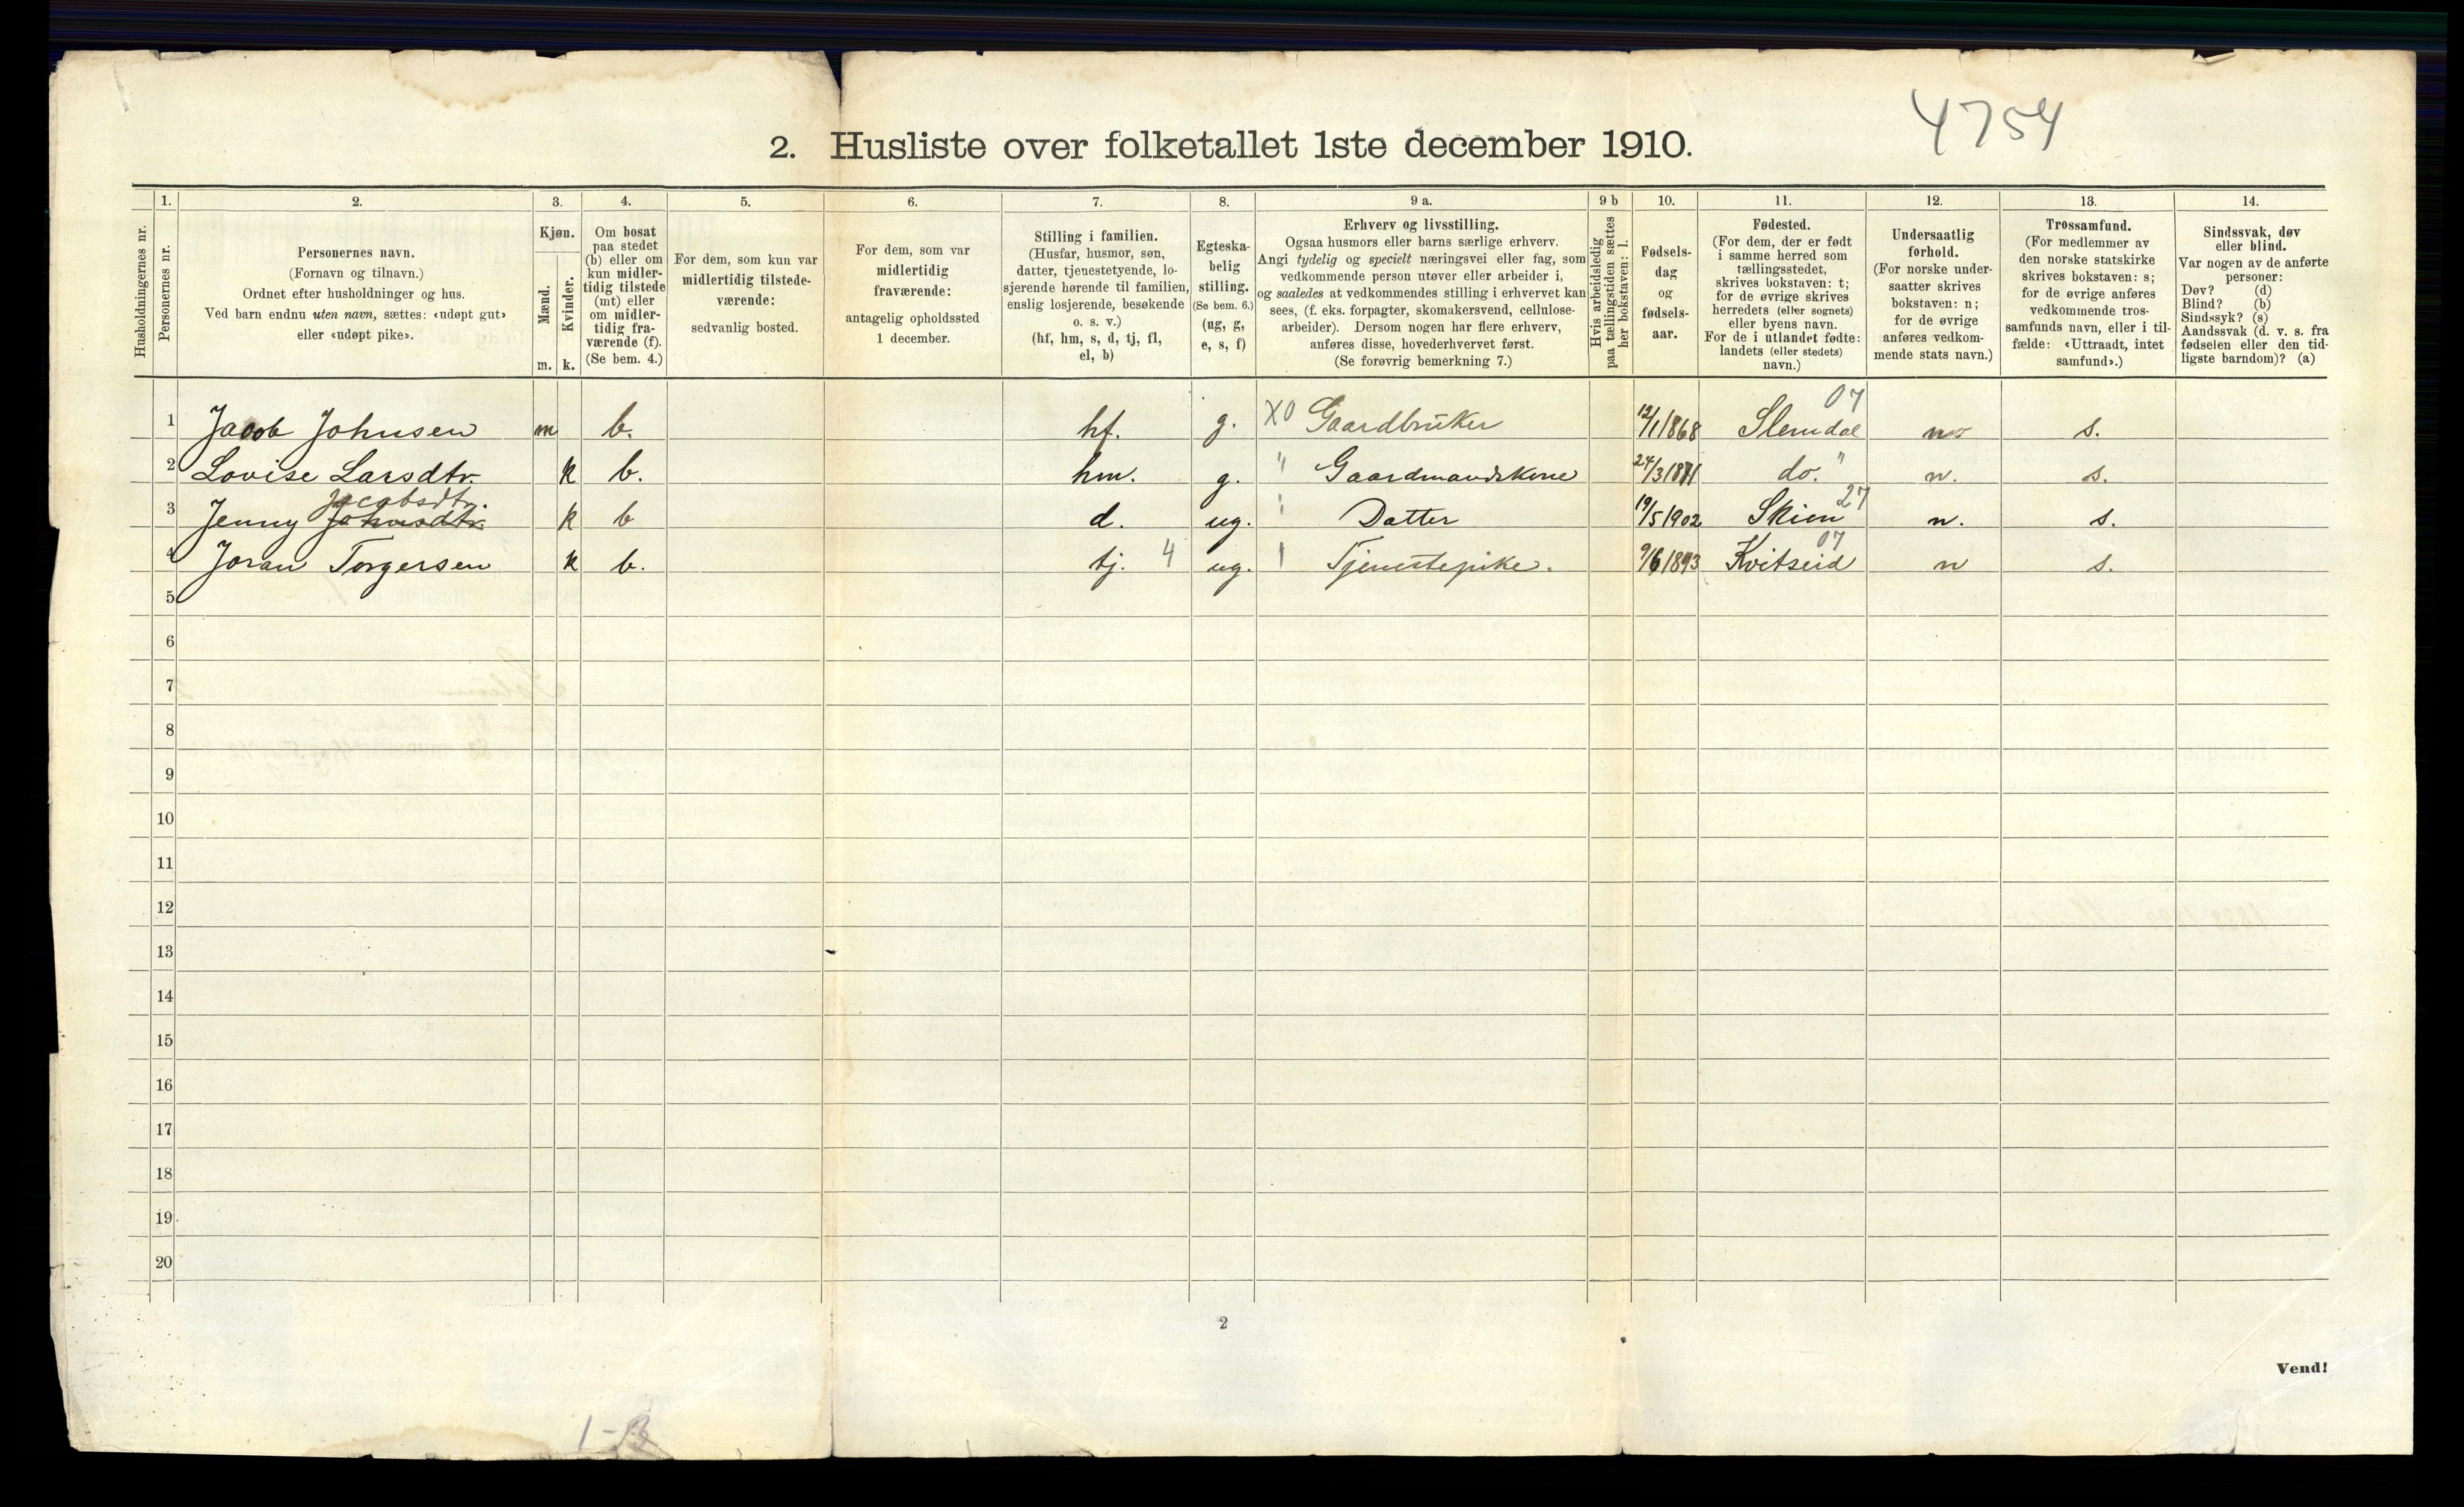 4754
2. Husliste over folketallet 1ste december 1910.
Husholdningernes nr.
1.
Personernes nr.
2.
Personernes navn.
(Fornavn og tilnavn.)
Ordnet efter husholdninger og hus.
Ved barn endnu uten navn, sættes: «udøpt gut»
eller «udøpt pike».
3.
Kjøn.
Mænd.
Kvinder.
m. k.
4.
Om bosat
paa stedet
(b) eller om
kun midler-
tidig tilstede
(mt) eller
om midler-
tidig fra-
værende (f).
(Se bem. 4.)
5.
For dem, som kun var
midlertidig tilstede-
værende:
sedvanlig bosted.
6.
For dem, som var
midlertidig
fraværende:
antagelig opholdssted
1 december.
7.
Stilling i familien.
(Husfar, husmor, søn,
datter, tjenestetyende, lo-
sjerende hørende til familien,
enslig losjerende, besøkende
o. s. v.)
(hf, hm, s, d, tj, fl,
el, b)
8.
Egteska-
belig
stilling.
(Se bem. 6.)
(ug, g,
e, s, f)
9 a.
Erhverv og livsstilling.
Ogsaa husmors eller barns særlige erhverv.
Angi tydelig og specielt næringsvei eller fag, som
vedkommende person utøver eller arbeider i,
og saaledes at vedkommendes stilling i erhvervet kan
sees, (f. eks. forpagter, skomakersvend, cellulose-
arbeider). Dersom nogen har flere erhverv,
anføres disse, hovederhvervet først.
(Se forøvrig bemerkning 7.)
9 b
Hvis arbeidsledig
paa tællingstiden sættes
her bokstaven: l.
10.
Fødsels-
dag
og
fødsels-
aar.
11.
Fødested.
(For dem, der er født
i samme herred som
tællingsstedet,
skrives bokstaven: t;
for de øvrige skrives
herredets (eller sognets)
eller byens navn.
For de i utlandet fødte:
landets (eller stedets)
navn.)
12.
Undersaatlig
forhold.
(For norske under-
saatter skrives
bokstaven: n;
for de øvrige
anføres vedkom-
mende stats navn.)
13.
Trossamfund.
(For medlemmer av
den norske statskirke
skrives bokstaven: s;
for de øvrige anføres
vedkommende tros-
samfunds navn, eller i til-
fælde: «Uttraadt, intet
samfund».)
14.
Sindssvak, døv
eller blind.
Var nogen av de anførte
personer:
Døv? (d)
Blind? (b)
Sindssyk? (s)
Aandssvak (d. v. s. fra
fødselen eller den tid-
ligste barndom)? (a)
07
1 Jacob Johnsen m b. hf. g. X0 Gaardbruker 12/1 1868 Slemdal s.
2 Lovise Larsdtr. k b. hm. g. " Gaardmandskone 24/3 1871 do. " n. s.
Jacobsdtr. 27
3 Jenny Johnsdtr. k b d. ug. " Datter 19/5 1902 Skien n. s.
07
4 Joran Torgersen k b. tj. 4 ug. Tjenestepike. 9/6 1893 Kvitseid n s.
5
6
7
8
9
10
11
12
13
14
15
16
17
18
19
20
2
Vend!